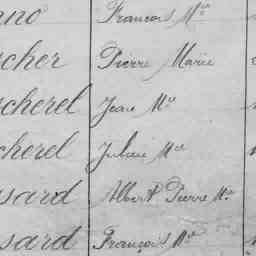 nno François Mie
cher Pierre Marie
cherel Jean Mie
cherel Julien Mie
sard Albert Pierre Mie
sard François Mie